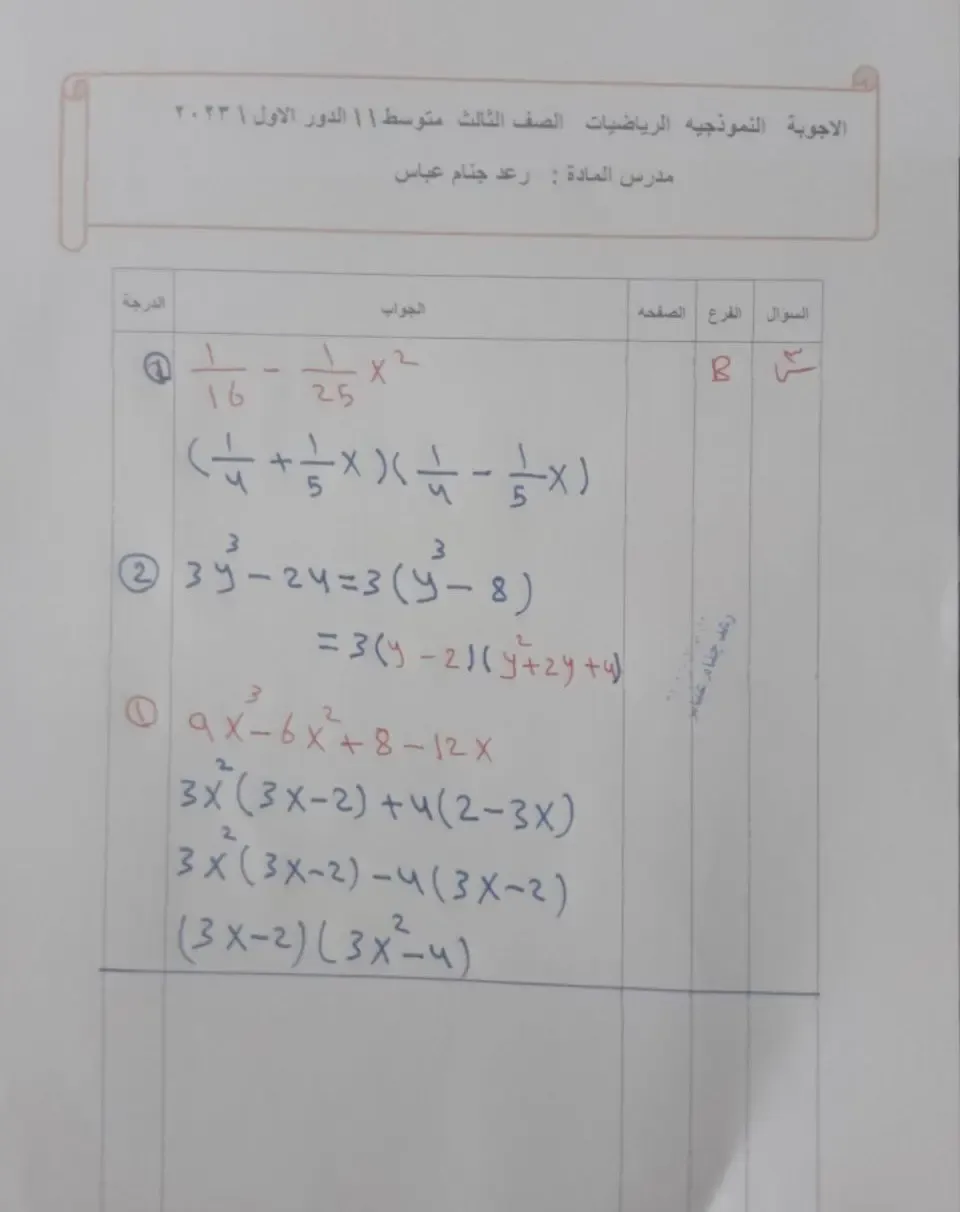 الاجوبة النموذجيه الرياضيات الصف الثالث متوسط \\ الدور الاول \ ٢٠٢٣
مدرس المادة : رعد جثام عباس
السوال الفرع الصفحه الجواب الدرجة
س٣ B
① 1/16 - 1/25 x²
(1/4 + 1/5 x)(1/4 - 1/5 x)
② 3y³ - 24 = 3(y³ - 8)
= 3(y - 2)(y² + 2y + 4)
① 9x³ - 6x² + 8 - 12x
3x²(3x - 2) + 4(2 - 3x)
3x²(3x - 2) - 4(3x - 2)
(3x - 2)(3x² - 4)